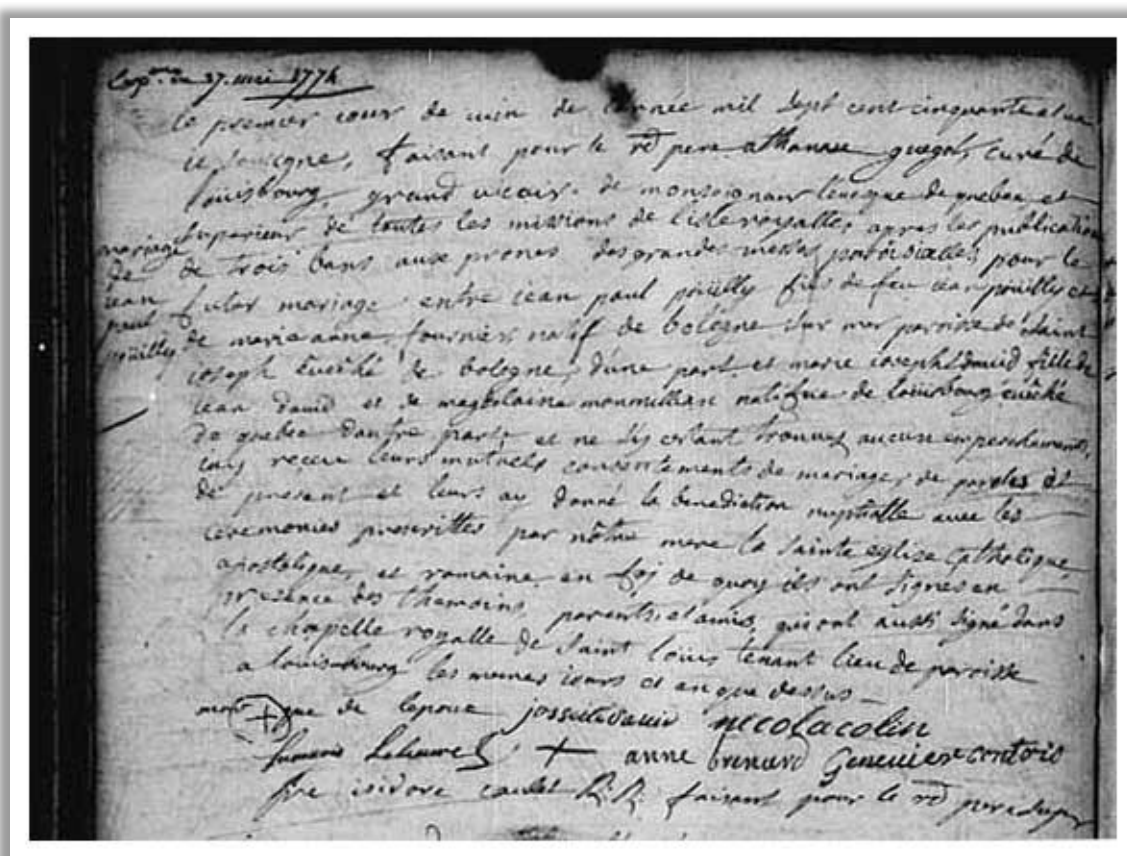 27. mai 1774
Le premier iour de iuin de l'année mil sept cent cinquante et un
ie sousigné, faisant pour le rd pere athanase guégot, curé de
louisbourg, grand vicair. de monseigneur l'eveque de quebec et
superieur de toutes les missions de l'isle royalles apres les publications
de trois bans aux prones des grandes messes paroissialles, pour le
mariage
de
iean
paul
poüilly
futur mariage entre iean paul poüilly fils de feu iean poüilly et
de marie anne fournier natif de bologne sur mer paroisse de saint
ioseph Evêché de bologne, d'une part, et marie iosephe david fille de
iean david et de magdelaine monmillian natifque de louisbourg evêché
de quebec d'autre part, et ne s'y estant trouvez aucun empeschements,
iay receu leurs mutuels consentements de mariage, de paroles de
de present et leurs ay donné la benediction nuptialle avec les
ceremonies prescrittes par nôtre mere la sainte eglise catholique,
apostolique, et romaine en foj de quoy ils ont signes en
presence des themoins, parents, et amis, qui ont aussi signé dans
la chapelle royalle de saint louis tenant lieu de paroisse
a louisbourg les memes iours et an que dessus
+ que de lepoux josseite david nicolacolin
+ anne brenard Genevieve contois
fre isidore caulet R.R. faisant pour le rd pere super